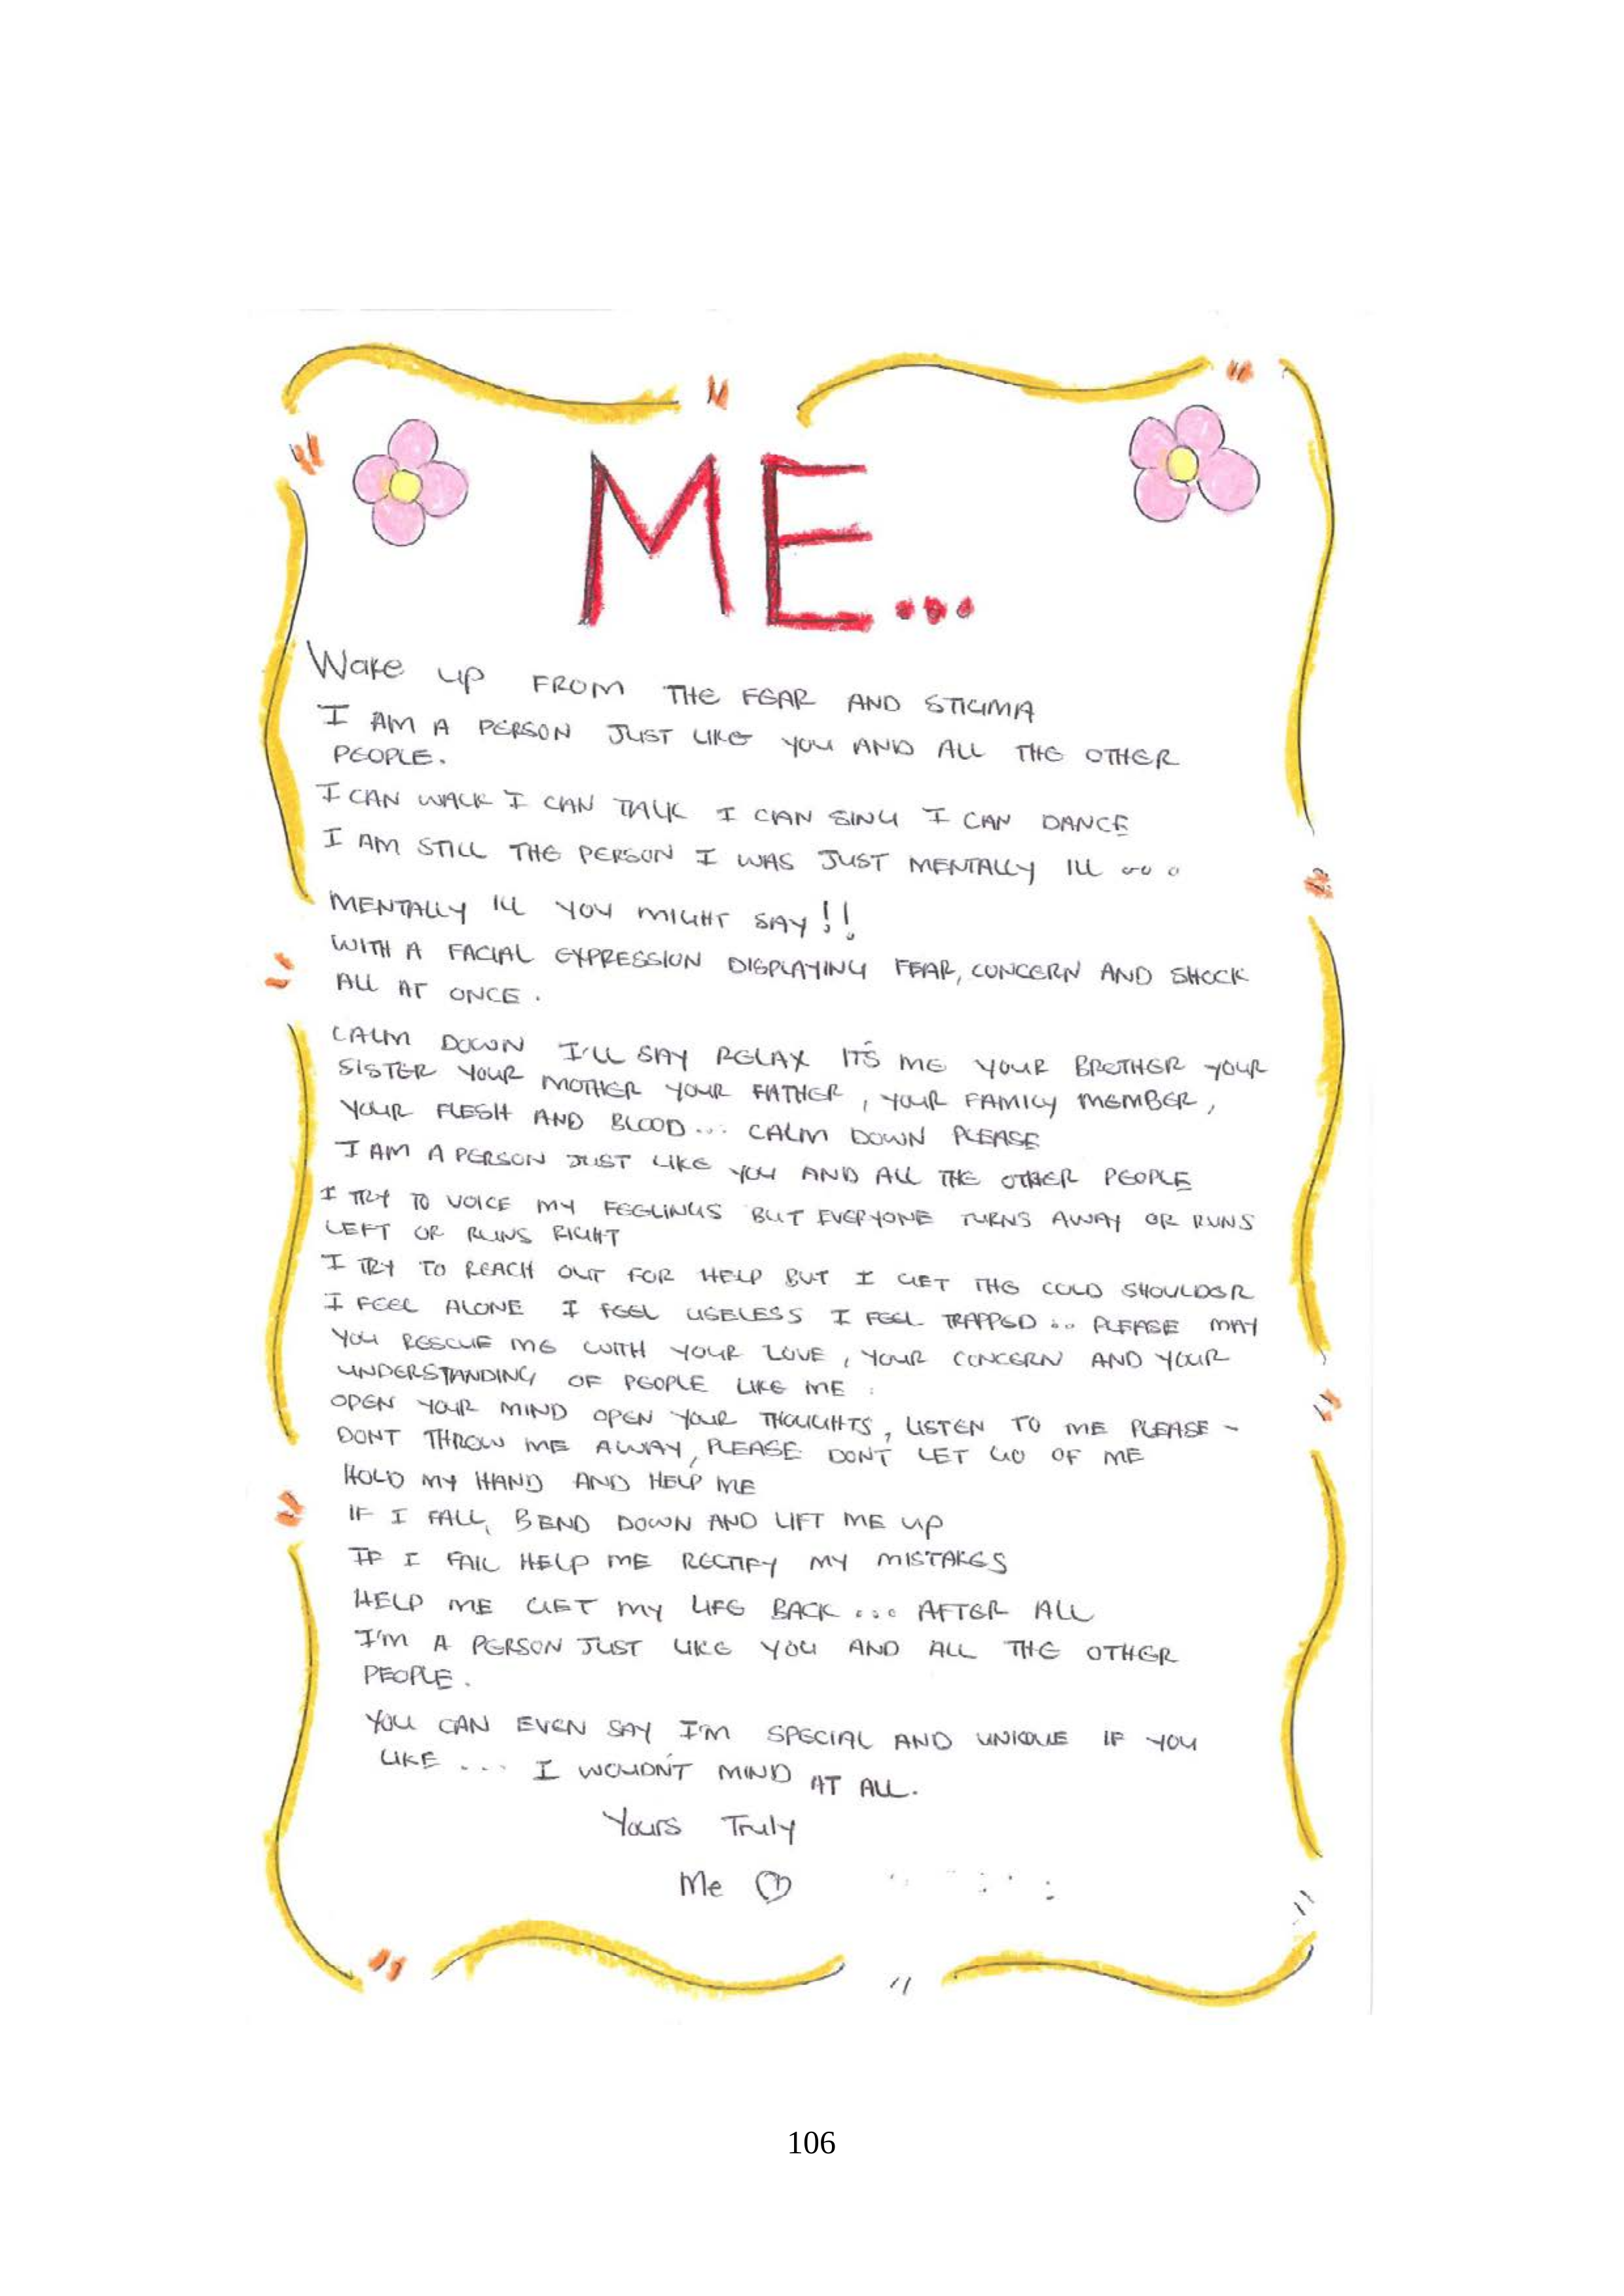 ME...
Wake up FROM THE FEAR AND STIGMA
I AM A PERSON JUST LIKE YOU AND ALL THE OTHER
PEOPLE.
I CAN WALK I CAN TALK I CAN SING I CAN DANCE
I AM STILL THE PERSON I WAS JUST MENTALLY ILL ...
MENTALLY ILL YOU MIGHT SAY!!
WITH A FACIAL EXPRESSION DISPLAYING FEAR, CONCERN AND SHOCK
ALL AT ONCE.
CALM DOWN I'LL SAY RELAX IT'S ME YOUR BROTHER YOUR
SISTER YOUR MOTHER YOUR FATHER, YOUR FAMILY MEMBER,
YOUR FLESH AND BLOOD... CALM DOWN PLEASE
I AM A PERSON JUST LIKE YOU AND ALL THE OTHER PEOPLE
I TRY TO VOICE MY FEELINGS BUT EVERYONE TURNS AWAY OR RUNS
LEFT OR RUNS RIGHT
I TRY TO REACH OUT FOR HELP BUT I GET THE COLD SHOULDER
I FEEL ALONE I FEEL USELESS I FEEL TRAPPED... PLEASE MAY
YOU RESCUE ME WITH YOUR LOVE, YOUR CONCERN AND YOUR
UNDERSTANDING OF PEOPLE LIKE ME:
OPEN YOUR MIND OPEN YOUR THOUGHTS, LISTEN TO ME PLEASE -
DONT THROW ME AWAY, PLEASE DON'T LET GO OF ME
HOLD MY HAND AND HELP ME
IF I FALL, BEND DOWN AND LIFT ME UP
IF I FAIL HELP ME RECTIFY MY MISTAKES
HELP ME GET MY LIFE BACK... AFTER ALL
I'M A PERSON JUST LIKE YOU AND ALL THE OTHER
PEOPLE.
YOU CAN EVEN SAY I'M SPECIAL AND UNIQUE IF YOU
LIKE ... I WOUDN'T MIND AT ALL.
Yours Truly
Me
106